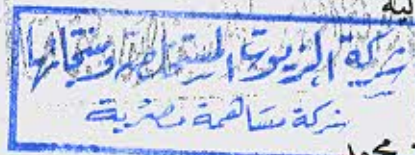 لية
شركة الزيوت المستخلصة ومنتجاتها
شركة مساهمة مصرية
محمد